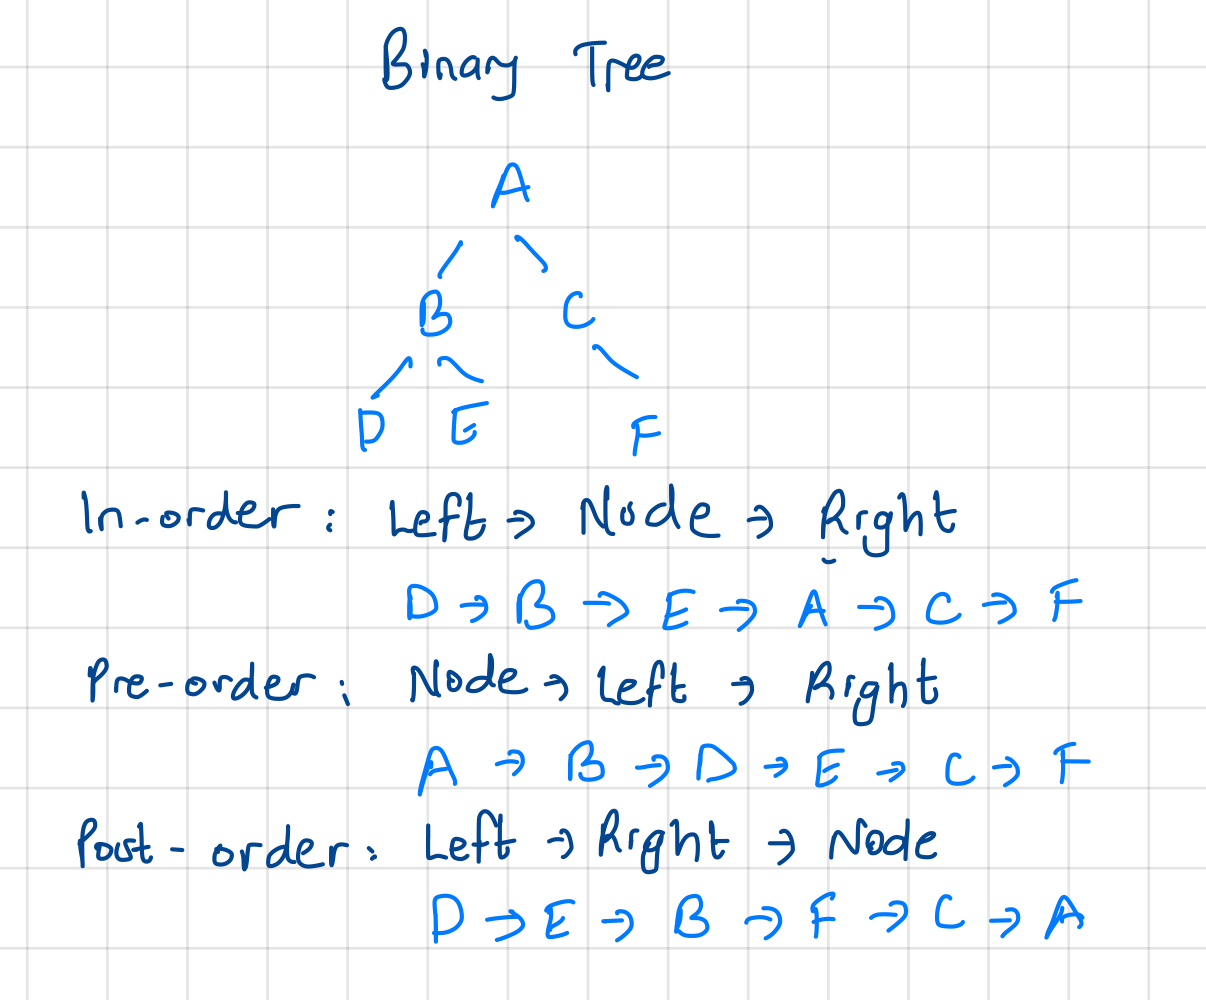 Binary Tree
A
B C
D E F
In-order: Left → Node → Right
D → B → E → A → C → F
Pre-order: Node → Left → Right
A → B → D → E → C → F
Post-order: Left → Right → Node
D → E → B → F → C → A